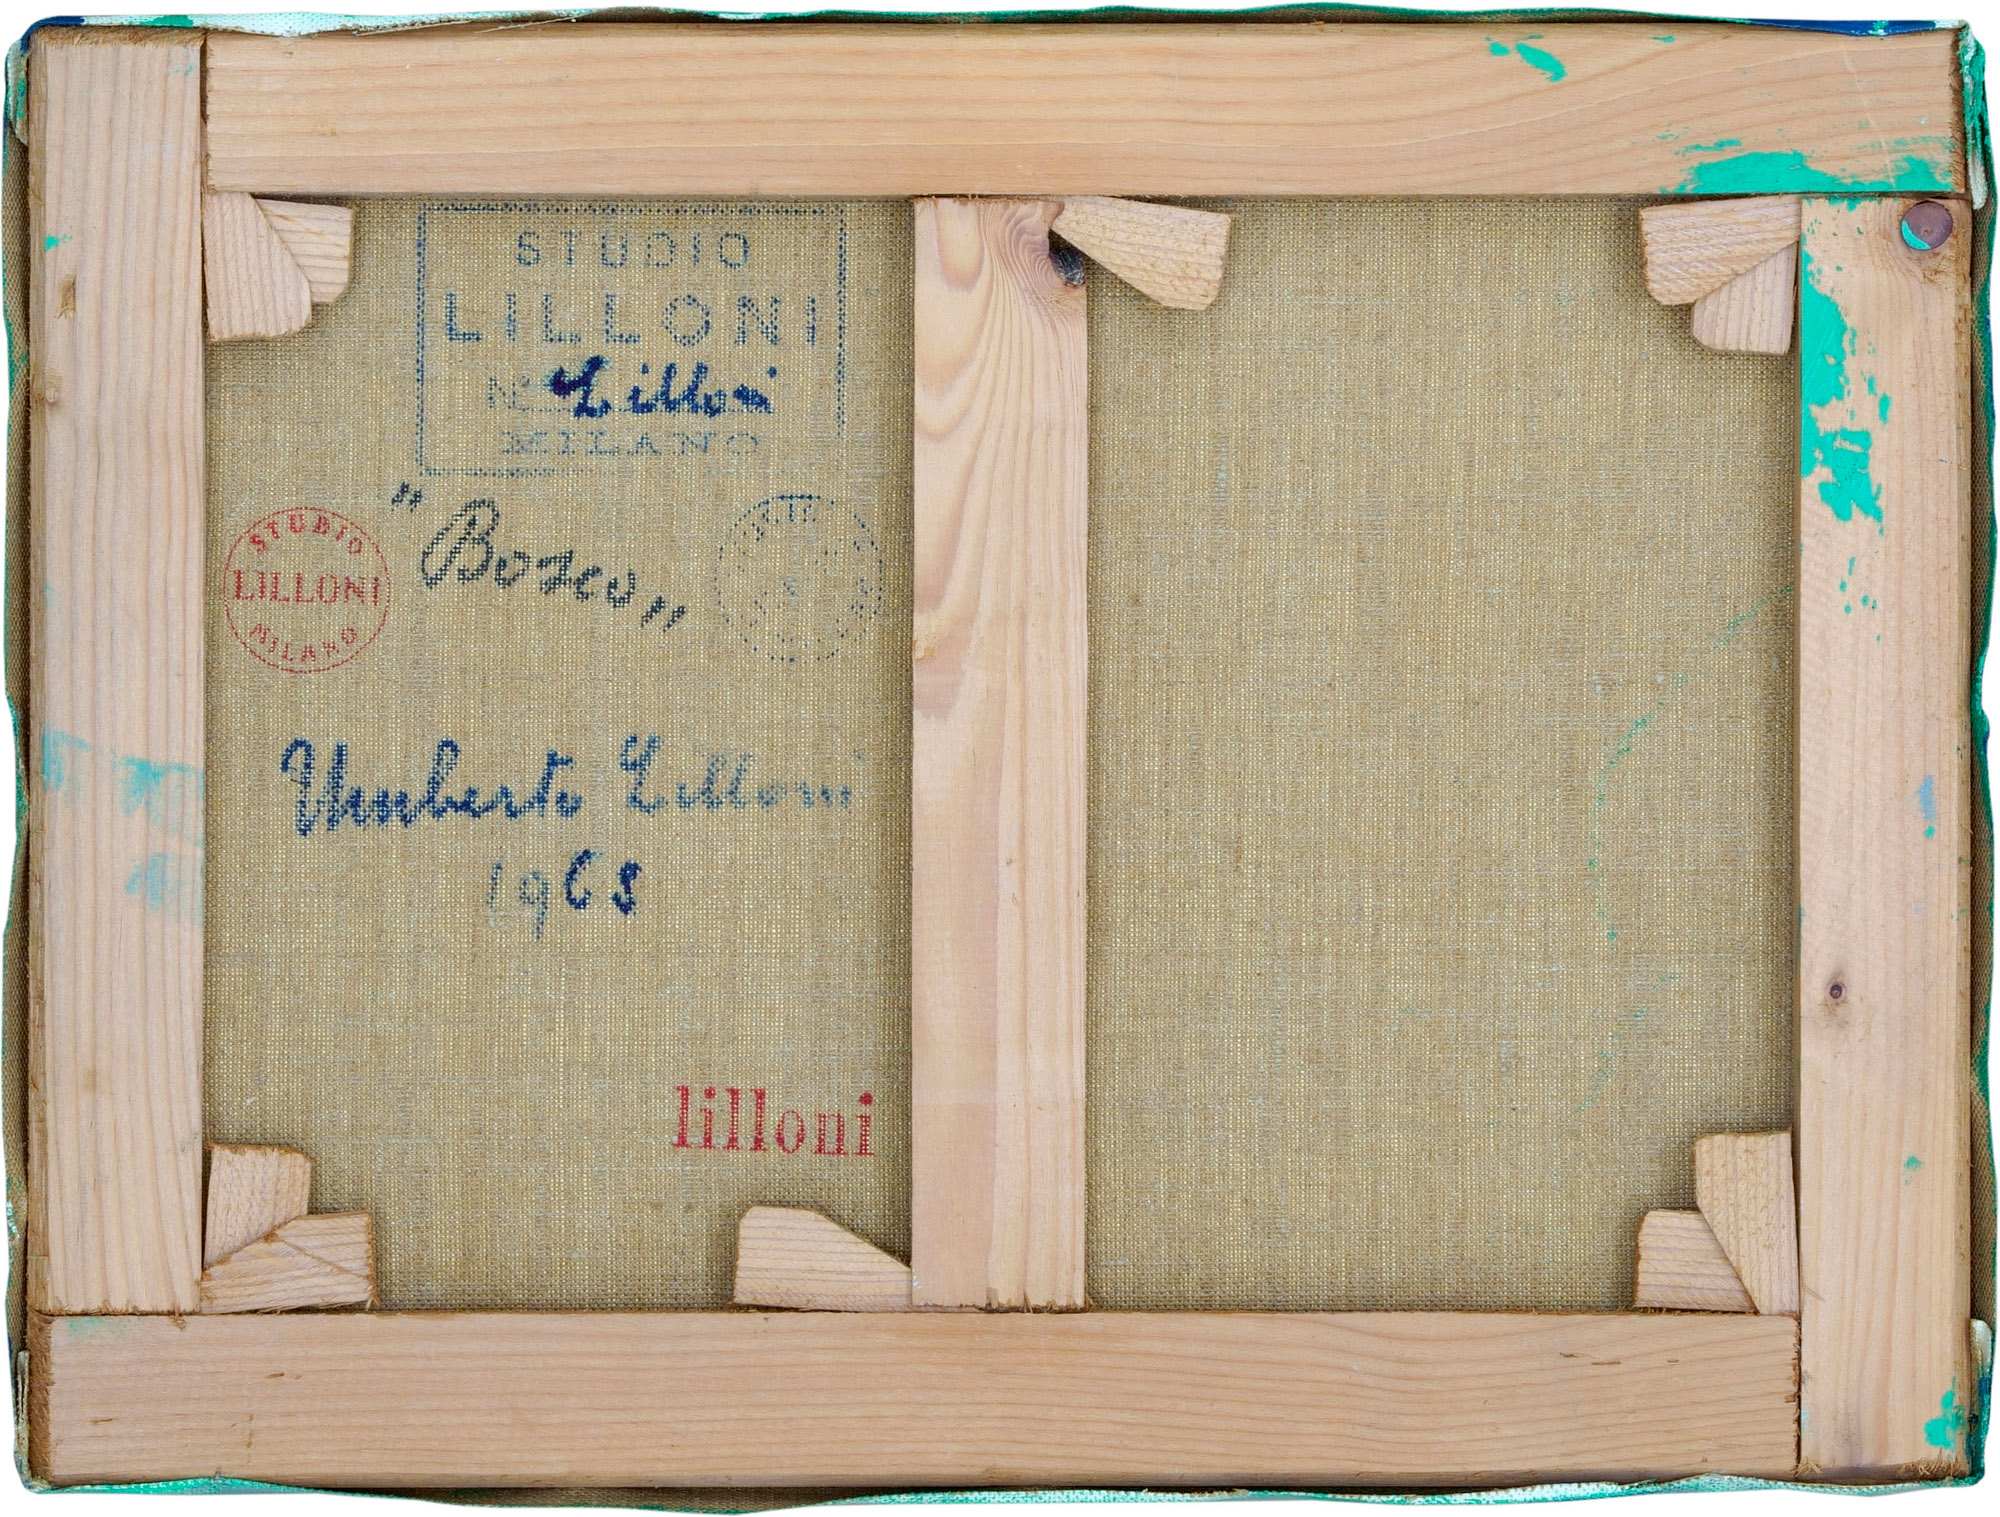 STUDIO
LILLONI
N° Lilloni
MILANO
"Bosco"
STUDIO
LILLONI
MILANO
Umberto Lilloni
1965
lilloni